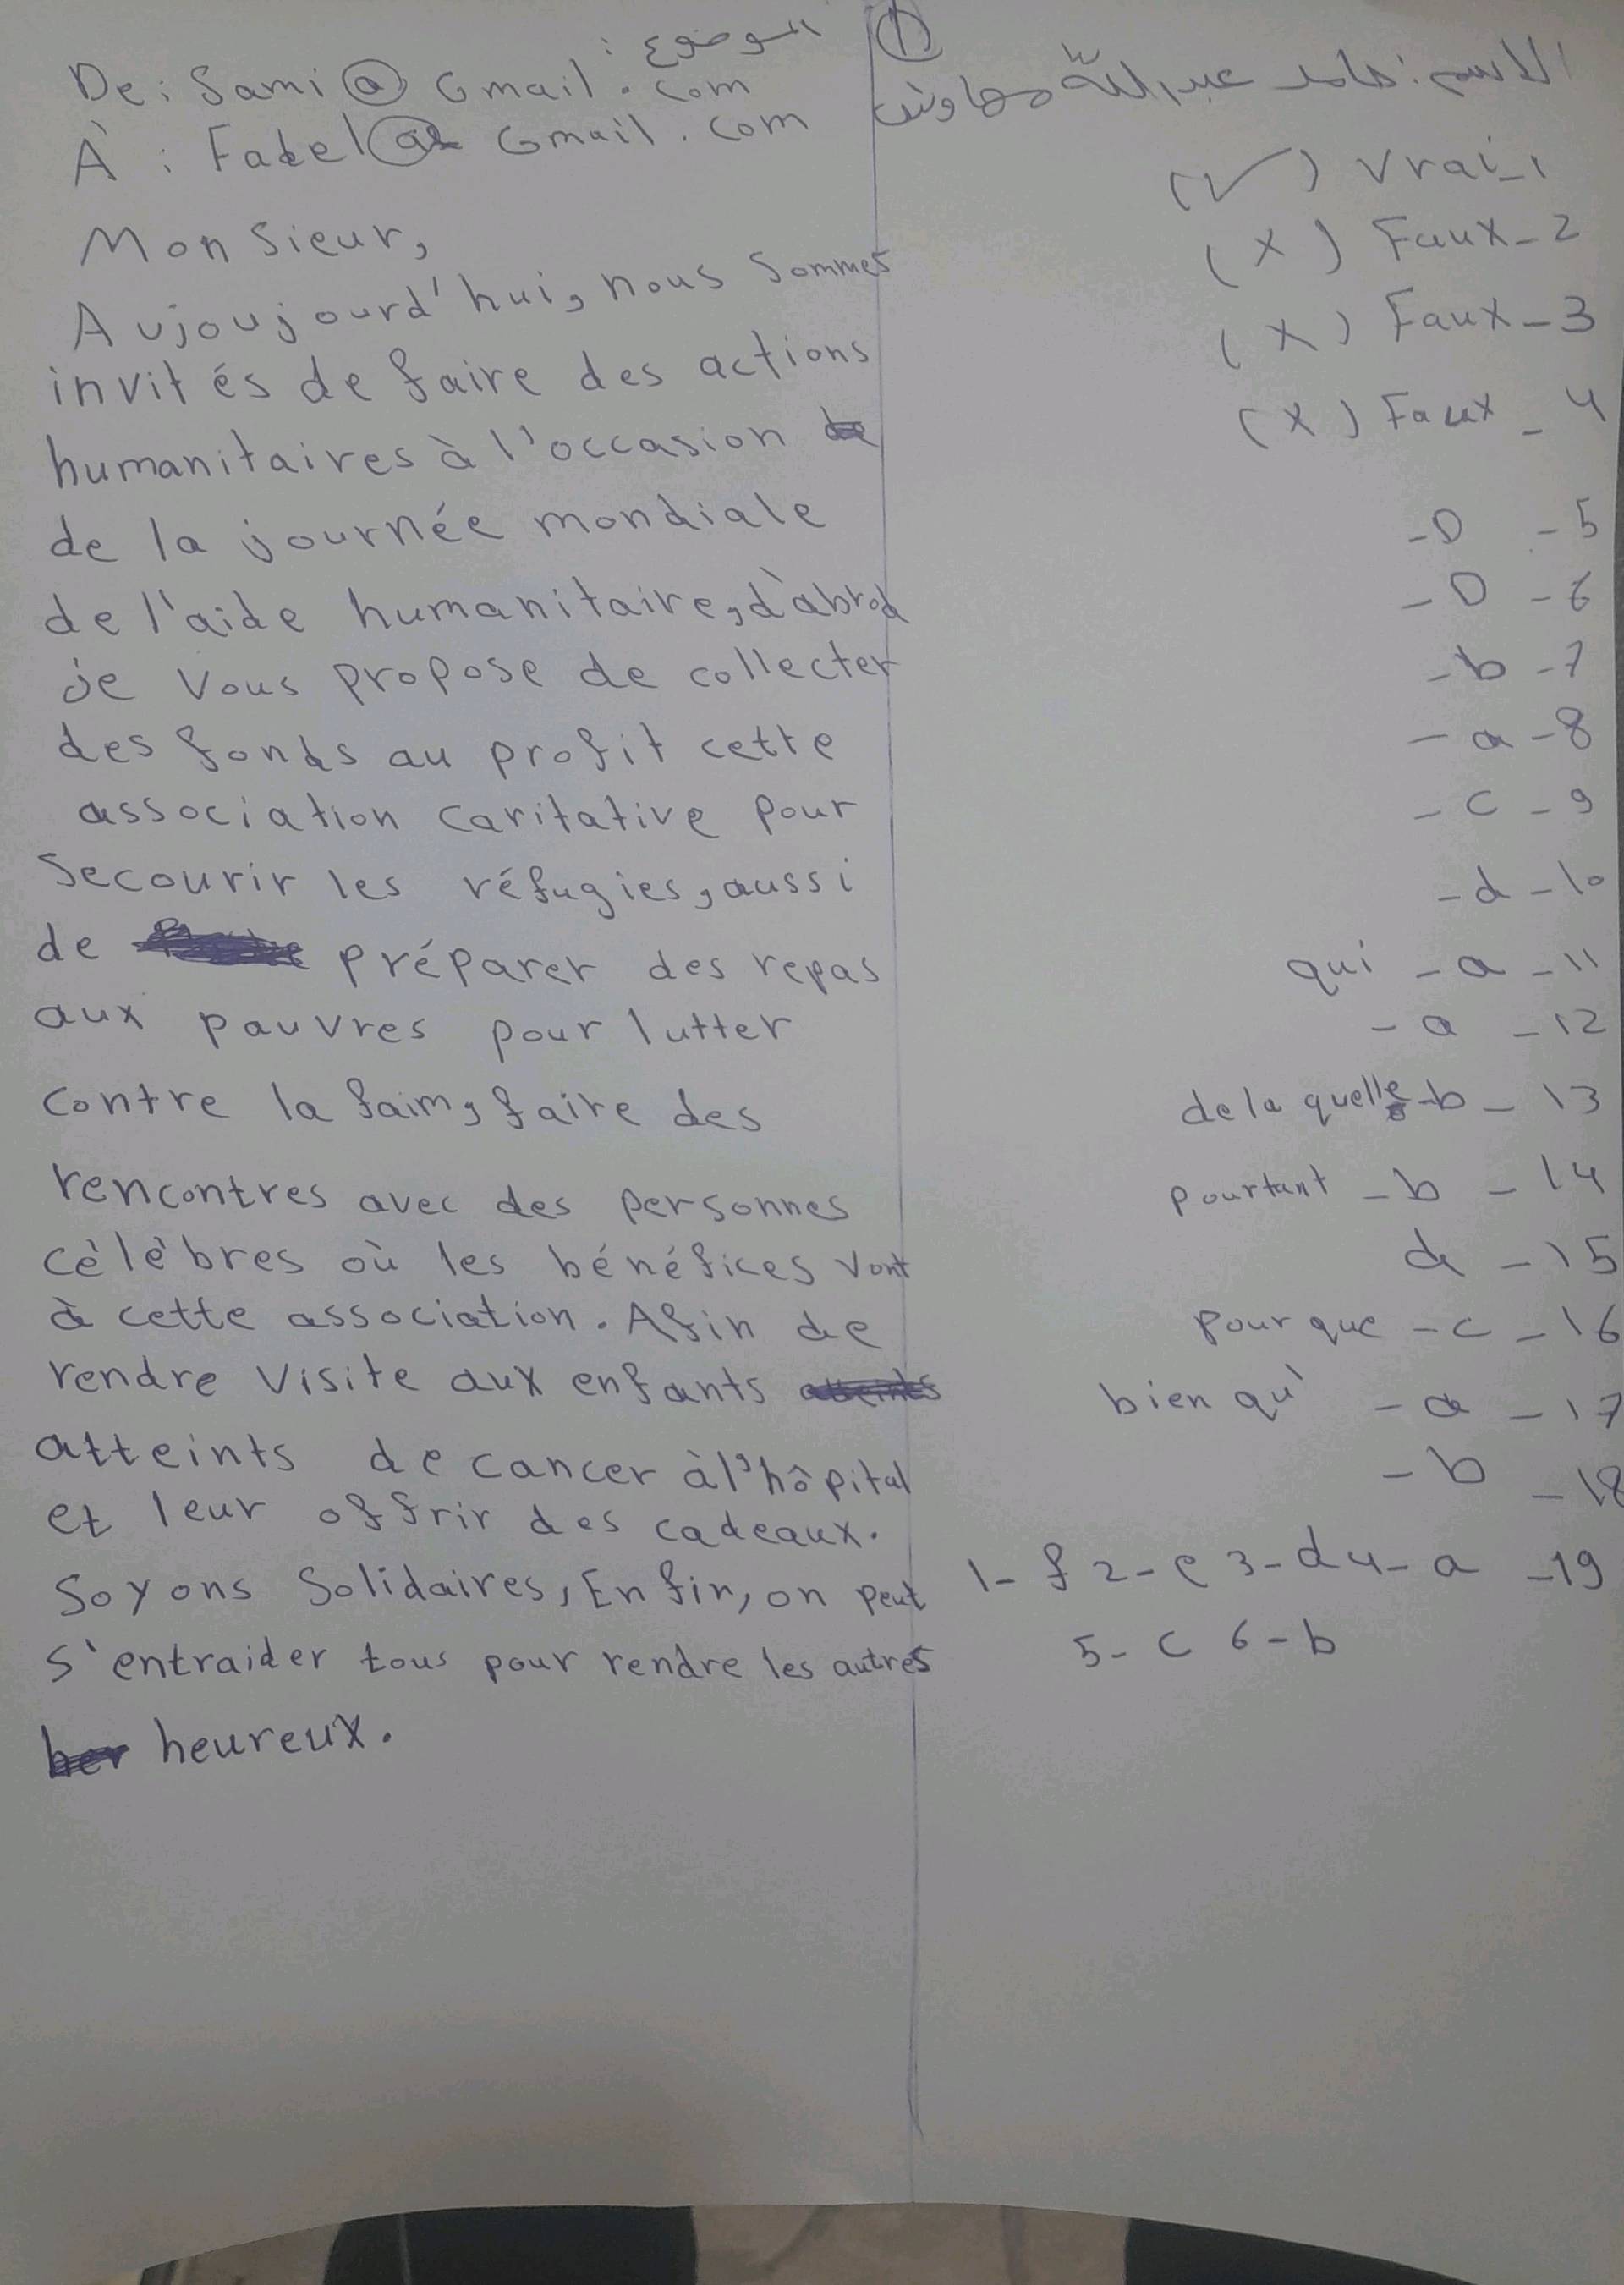 ①
الاسم: حامد عبد اللّه مهاوش
(✓) Vrai - 1
(X) Faux - 2
(X) Faux - 3
(X) Faux - 4
- D - 5
- D - 6
- b - 7
- a - 8
- c - 9
- d - 10
qui - a - 11
- a - 12
de la quelle - b - 13
pourtant - b - 14
d - 15
pour que - c - 16
bien qu' - a - 17
- b - 18
1- f 2- e 3- d 4- a - 19
5- c 6- b
الموضوع:
De: Sami@Gmail.com
À: Fadel@Gmail.com
Monsieur,
Aujoujourd'hui, nous sommes
invités de faire des actions
humanitaires à l'occasion
de la journée mondiale
de l'aide humanitaire, d'abrod
je vous propose de collecter
des fonds au profit cette
association caritative pour
secourir les réfugies, aussi
de préparer des repas
aux pauvres pour lutter
contre la faim, faire des
rencontres avec des personnes
célèbres où les bénéfices vont
à cette association. Afin de
rendre visite aux enfants
atteints de cancer à l'hôpital
et leur offrir des cadeaux.
Soyons Solidaires, Enfin, on peut
s'entraider tous pour rendre les autres
heureux.